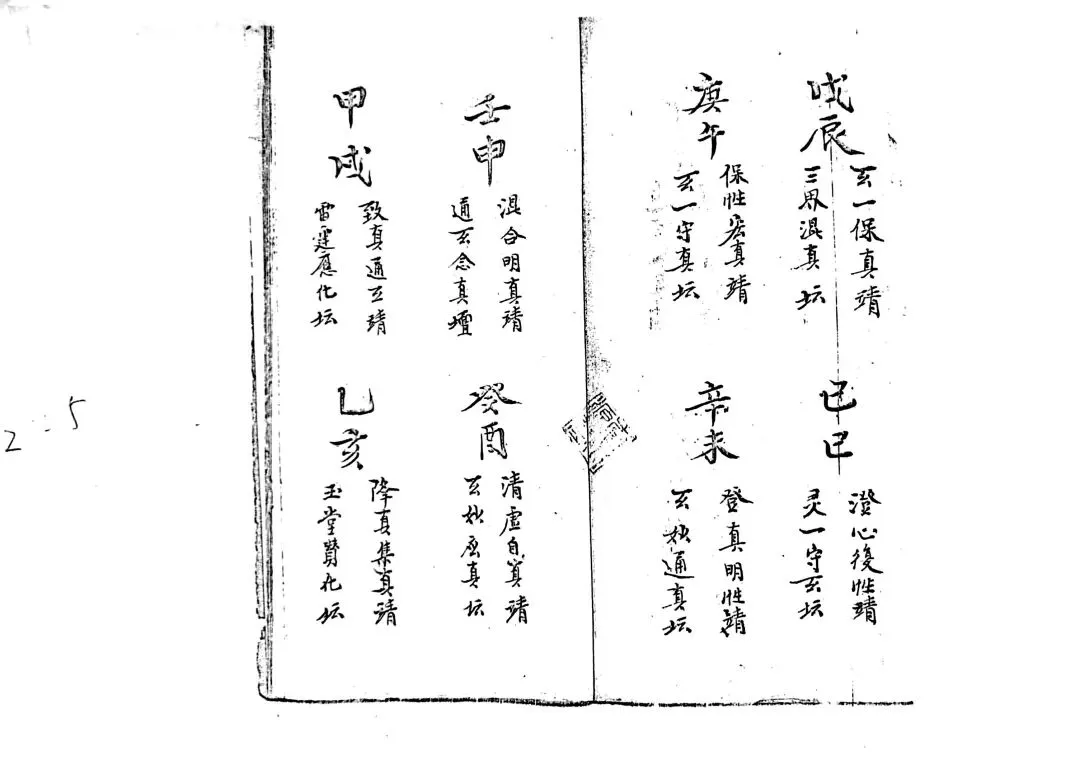 戊辰
玄一保真靖
三界混真坛
己巳
澄心復性靖
灵一守玄坛
庚午
保性宏真靖
玄一守真坛
辛未
登真明性靖
玄妙通真坛
壬申
混合明真靖
通玄念真壇
癸酉
清虚自真靖
玄妙真坛
甲戌
致真通玄靖
雷霆應化坛
乙亥
降真集真靖
玉堂贊化坛
2-5